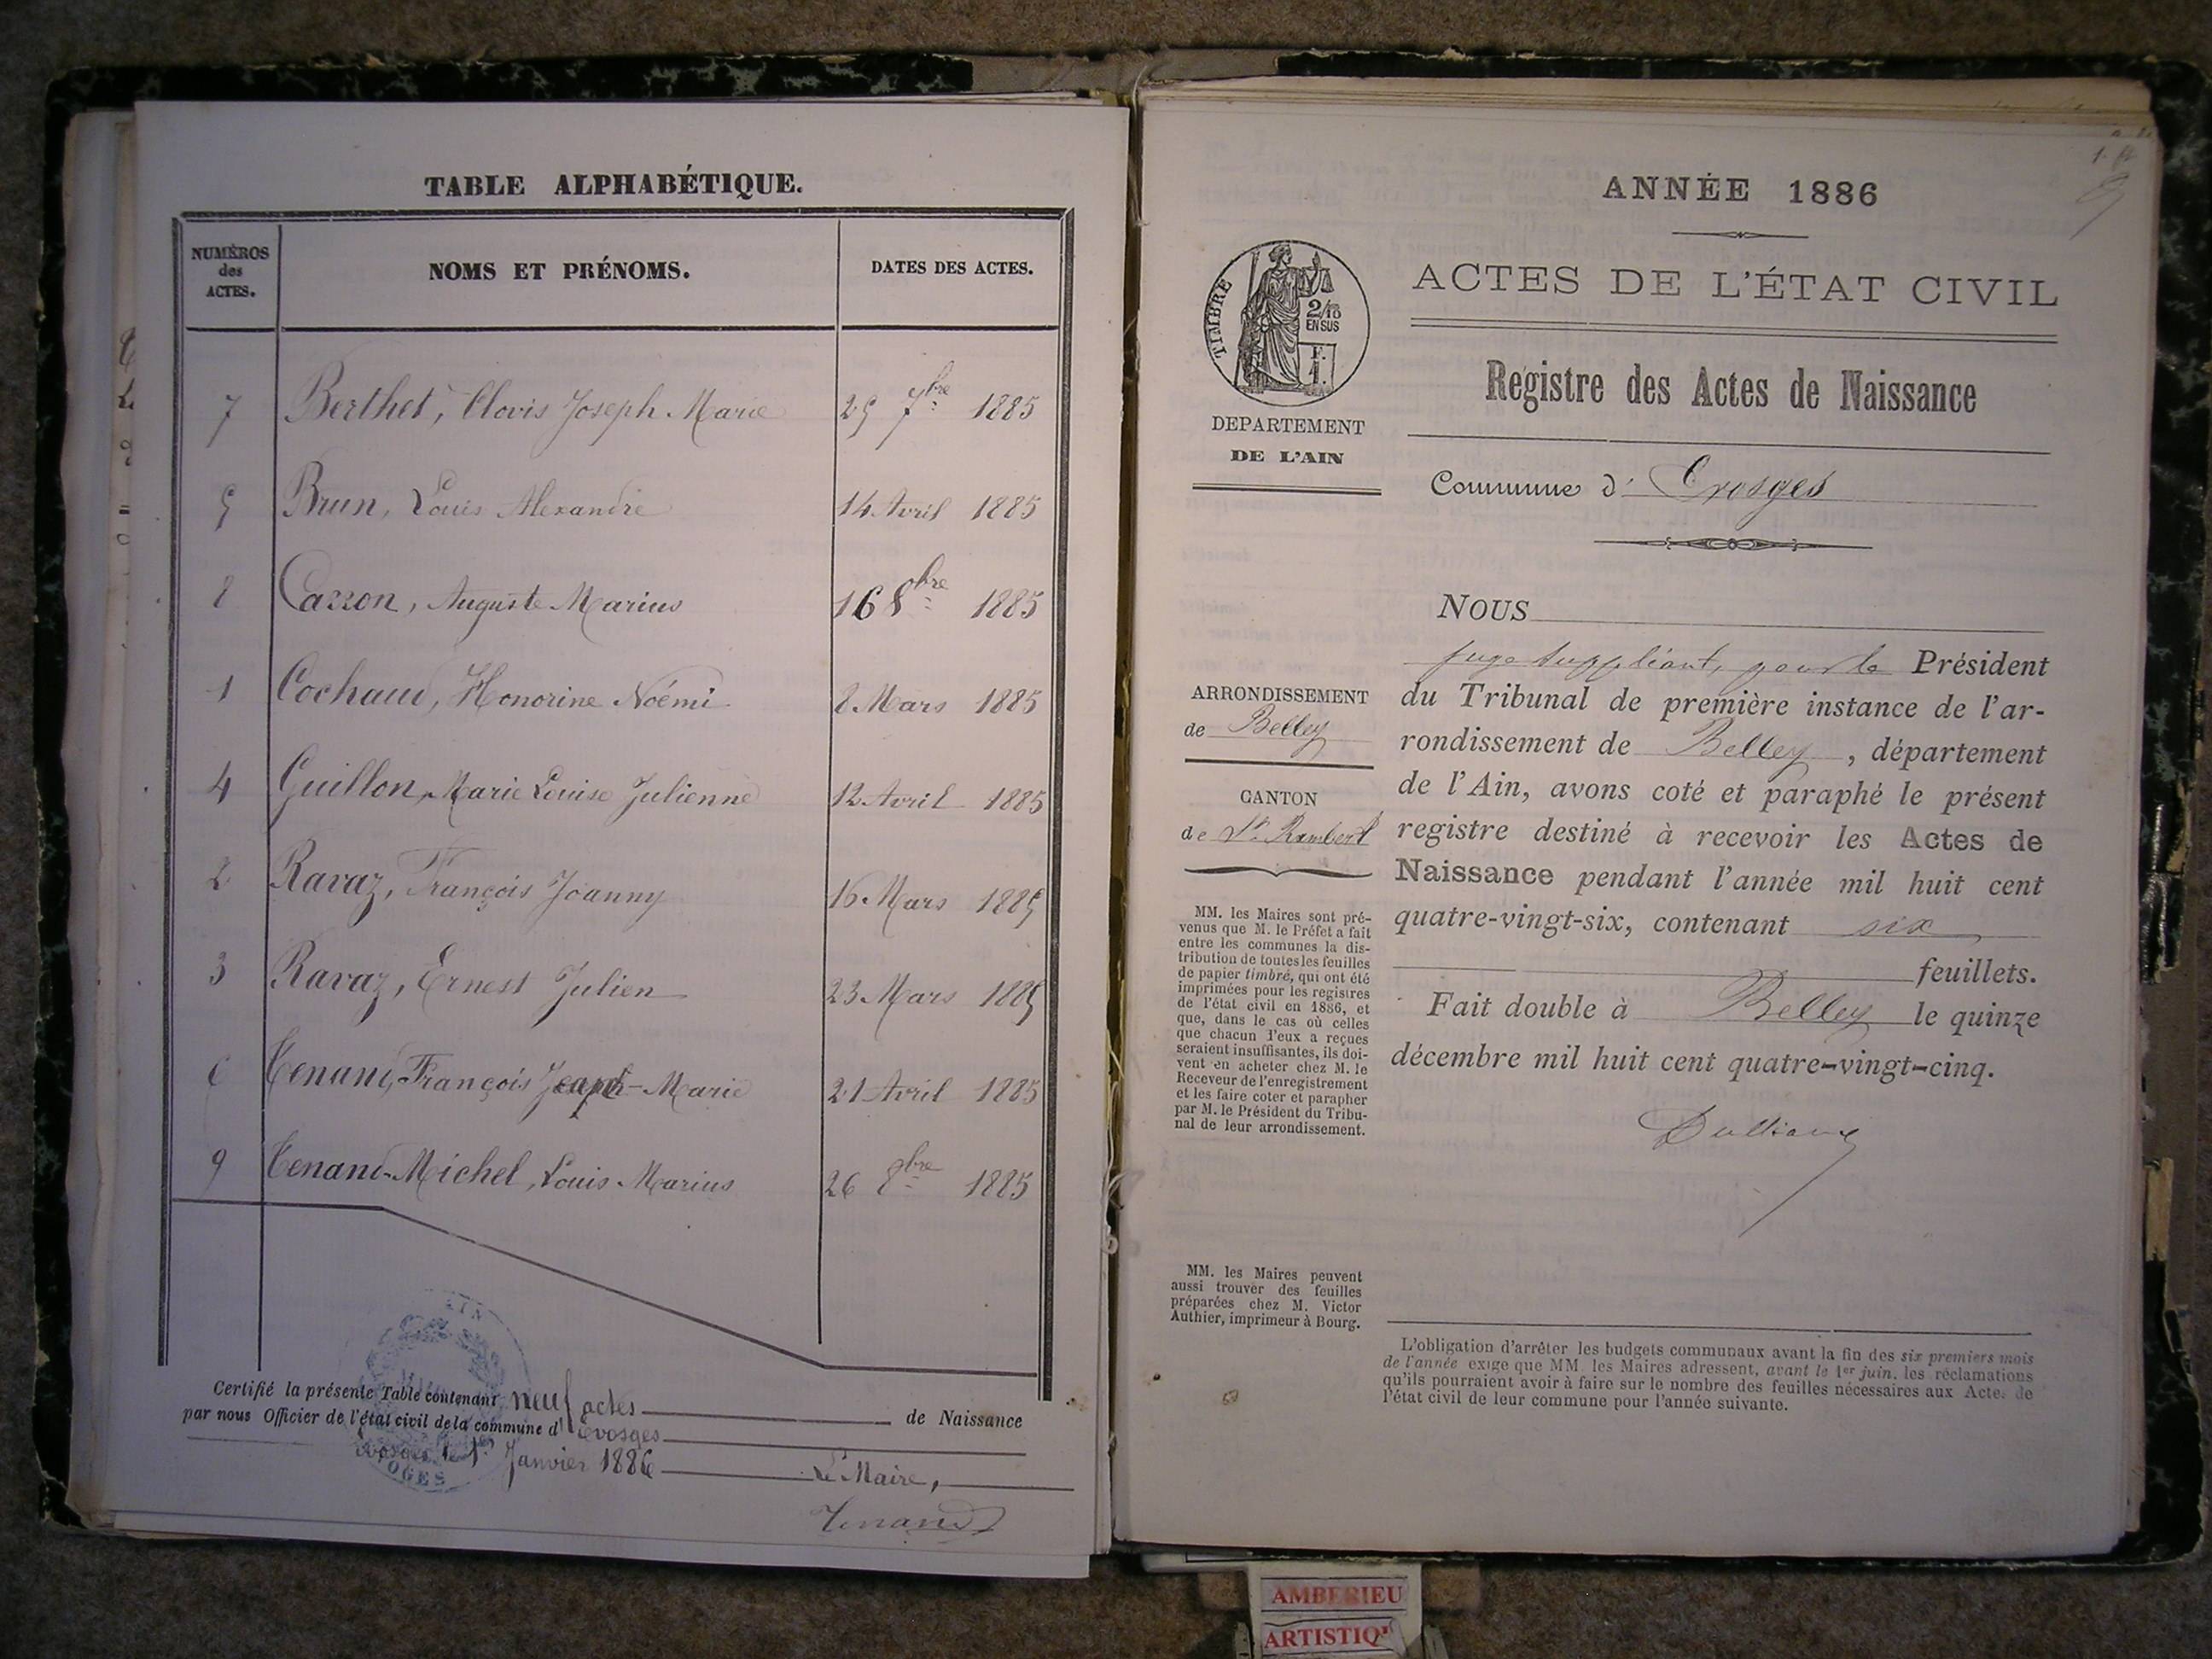 TABLE ALPHABÉTIQUE.
NUMÉROS des ACTES. NOMS ET PRÉNOMS. DATES DES ACTES.
7 Berthet, Clovis Joseph Marie 25 7bre 1885
5 Brun, Louis Alexandre 14 Avril 1885
8 Carron, Auguste Marius 16 8bre 1885
1 Cochaud, Honorine Noémi 8 Mars 1885
4 Guillon, Marie Louise Julienne 12 Avril 1885
2 Ravaz, François Joanny 16 Mars 1885
3 Ravaz, Ernest Julien 23 Mars 1885
6 Tenand, François Joseph-Marie 21 Avril 1885
9 Tenand-Michel, Louis Marius 26 8bre 1885
Certifié la présente Table contenant neuf actes de Naissance
par nous Officier de l'état civil de la commune d' Evosges
Evosges le 1er Janvier 1886 Le Maire,
Tenand
ANNÉE 1886
ACTES DE L'ÉTAT CIVIL
TIMBRE
2/10
EN SUS
F.
1.
DEPARTEMENT
DE L'AIN
Registre des Actes de Naissance
Commune d' Evosges
ARRONDISSEMENT
de Belley
CANTON
de St Rambert
MM. les Maires sont pré-
venus que M. le Préfet a fait
entre les communes la dis-
tribution de toutes les feuilles
de papier timbré, qui ont été
imprimées pour les registres
de l'état civil en 1886, et
que, dans le cas où celles
que chacun d'eux a reçues
seraient insuffisantes, ils doi-
vent en acheter chez M. le
Receveur de l'enregistrement
et les faire coter et parapher
par M. le Président du Tribu-
nal de leur arrondissement.
MM. les Maires peuvent
aussi trouver des feuilles
préparées chez M. Victor
Authier, imprimeur à Bourg.
NOUS
juge suppléant, pour le Président
du Tribunal de première instance de l'ar-
rondissement de Belley, département
de l'Ain, avons coté et paraphé le présent
registre destiné à recevoir les Actes de
Naissance pendant l'année mil huit cent
quatre-vingt-six, contenant six
feuillets.
Fait double à Belley le quinze
décembre mil huit cent quatre-vingt-cinq.
L'obligation d'arrêter les budgets communaux avant la fin des six premiers mois
de l'année exige que MM. les Maires adressent, avant le 1er juin, les réclamations
qu'ils pourraient avoir à faire sur le nombre des feuilles nécessaires aux Actes de
l'état civil de leur commune pour l'année suivante.
AMBERIEU
ARTISTIQ